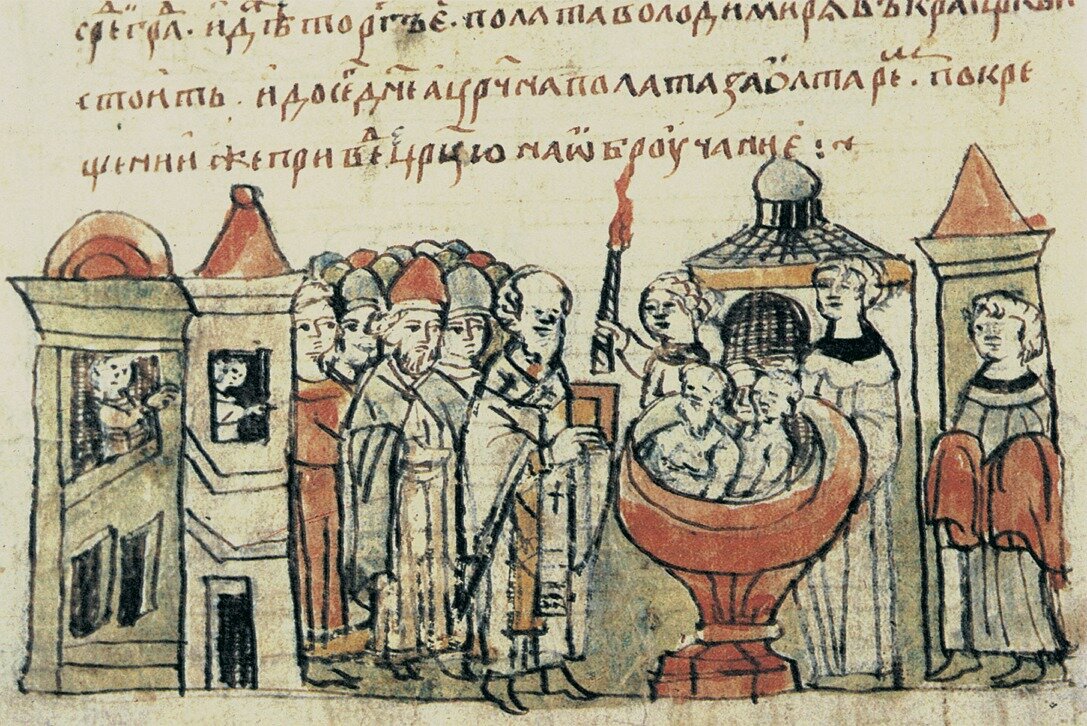 среⷣ граⷣ. идⷤѣ торгъ є. полата володимирѧ въ краи цркви
стоить. и до сеⷢ дн҃е а црчна полата за ѡлтареⷨ. по кре
щении же привеⷣ црцю на ѡброучание :~